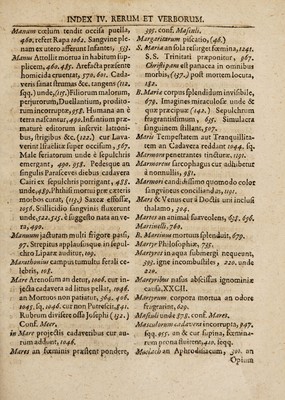 INDEX IV. RERUM ET VERBORUM.
Manum cœlum tendit occisa puella,
460. refert Rapa 1062. Sanguine plenam ex utero afferunt Infantes, 553.
Manu Attollit mortua in habitum supplicem, 460. 485. Arefacta præsente
homicida cruentat, 570. 601. Cadaveris sanat strumas &c. tangens (112,
sqq.) undę, (115.) Filiorum malorum,
perjurorum, Duellantium, proditorum incorruptæ, 358. Humana an è
terra nascantur, 490. Infantium præmaturè editorum inservit latronibus, strigibus &c. (122.) cur Laverint Israelitæ super occisum, 567.
Male feriatorum unde è sepulchris
emergant, 490. 558. Pedesque an
singulis Parasceves diebus cadavera
Cairi ex sepulchris porrigant, 488.
unde, 489. Philosomni præ cæteris
morbos curat, (113.) Saxeæ effossæ,
1056. Sollicidio sanguinis fluxerunt
unde, 522. 525. è suggesto nata an vera, 490.
Manuum jactatum multi frigore passi,
97. Strepitus applaususque in sepulchro Lipsæ auditur, 109.
Marathonius campus tumultu ferali celebris, 108.
Mare Arenosum an detur, 1006. cur injecta cadavera ad littus pellat, 1046.
an Mortuos non patiatur, 364. 408.
1045. sq. 1046. cur non Putrescit, 841.
Rubrum divisere ossa Josephi (132.)
Conf. Meer.
in Mare projectis cadaveribus cur aurum addunt, 1046.
Mares an fœminis præstent pondere,
395. conf. Masculi.
Margaritarum piscatio, (46.)
S. Maria an sola resurget fœmina, 1241.
S. S. Trinitati præponitur, 967.
Christi pani est panacea in omnibus
morbis, (137.) post mortem locuta,
452.
B. Maria corpus splendidum invisibile,
679. Imagines miraculosæ unde &
quæ præcipuæ (142.) Sepulchrum
fragrantissimum, 635. Simulacra
sanguinem stillant, 507.
Maris Tempestatem aut Tranquillitatem an Cadavera reddant 1044. sq.
Marmora penetrantes tincturæ. 1191.
Marmoreos sarcophagus cur adhibetur
à nonnullis, 951.
Marmori candidissimo quomodo color
sanguineus conciliandus, 1191.
Mars & Venus cur à Doctis uni inclusi
thalamo, 304.
Martes an animal suaveolens, 623. 656.
Martinelli, 760.
B. Martinus mortuus splenduit, 679.
Martyr Philosophiæ, 735.
Martyri in aqua submergi nequeunt,
393. igne incombustiles, 220. unde
220.
Martyribus nasus abscissus ignominiæ
causa, XXCII.
Martyrum corpora mortua an odore
fragrantia, 629.
Masculi unde 578. conf. Mares.
Masculorum cadavera incorrupta, 947.
sqq. 951. an & cur supina, fœminea
rum prona fluitent, 410. seqq.
Masticis an Aphrodisiacum, 301. an
Opium